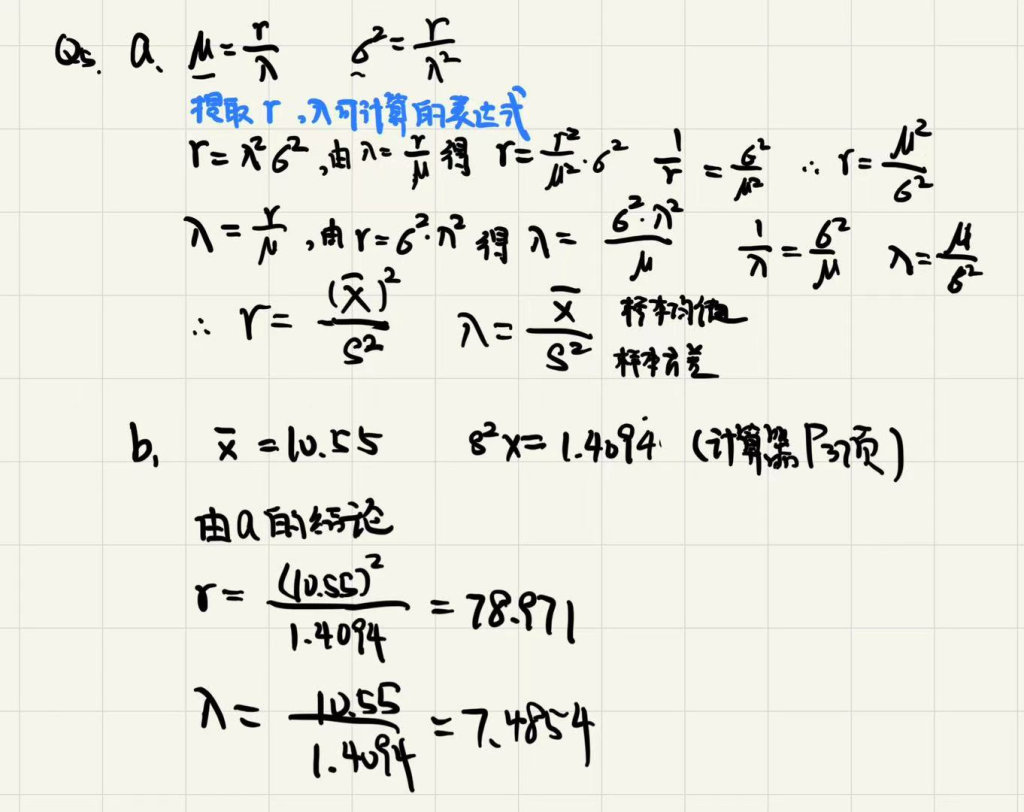 Q5. a、 μ = r/λ  σ² = r/λ²
提取 r , λ 可计算的表达式
r = λ²σ² , 由 λ = r/μ 得 r = r²/μ² · σ²  1/r = σ²/μ² ∴ r = μ²/σ²
λ = r/μ , 由 r = σ²·λ² 得 λ = σ²·λ²/μ  1/λ = σ²/μ  λ = μ/σ²
∴ r = (x̄)²/S²  λ = x̄/S² 样本均值
样本方差
b、 x̄ = 10.55  s²x = 1.4094 (计算器 P37页)
由a的结论
r = (10.55)²/1.4094 = 78.971
λ = 10.55/1.4094 = 7.4854